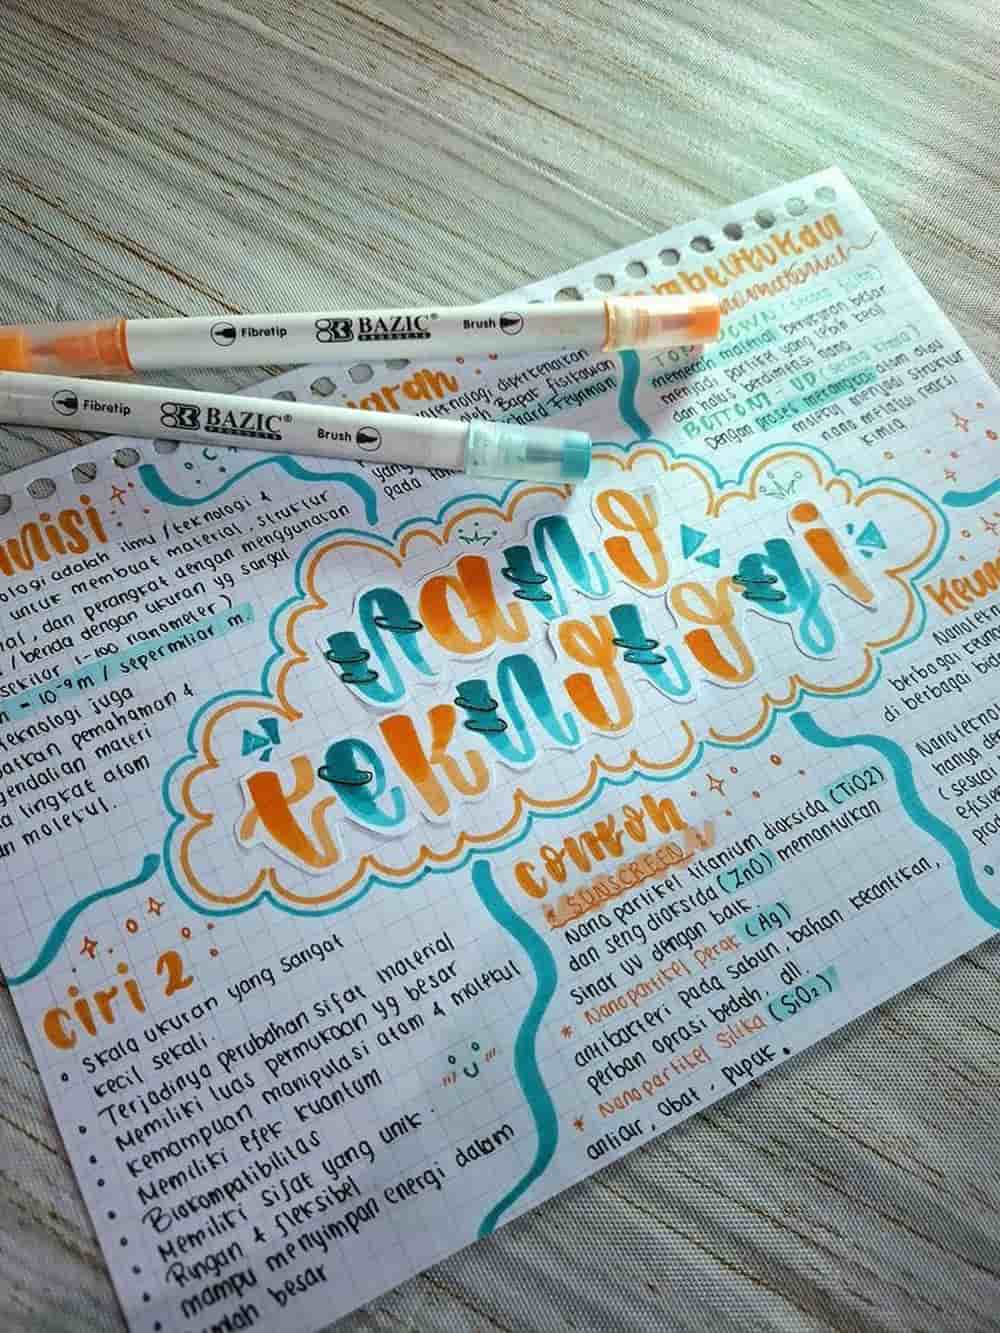 Fibretip BAZIC® PRODUCTS Brush
Fibretip BAZIC® PRODUCTS Brush
nano
teknologi
misi
ologi adalah ilmu / teknologi &
untuk membuat material, struktur
dan perangkat dengan menggunakan
/ benda dengan ukuran yg sangat
sekitar 1-100 nanometer)
= 10⁻⁹ m / sepermiliar m.
teknologi juga
pemahaman &
gendalian materi
a lingkat atom
n molekul.
diperkenalkan
oleh Bapak fisikawan
chard Feynman
yang
pada
mbentukan
nomaterial
TOP
memecah material berukuran besar
menjadi partikel yang lebih kecil
dan halus berdimensi nano
BOTTOM - UP
Dengan proses merangkai atom atau
molekul menjadi struktur
nano melalui reaksi
kimia
ciri 2
• Skala ukuran yang sangat
kecil sekali.
• Terjadinya perubahan sifat material
• Memiliki luas permukaan yg besar
• Kemampuan manipulasi atom & molekul
• Memiliki efek kuantum
• Biokompatibilitas
• Memiliki sifat yang unik.
• Ringan & fleksibel
• mampu menyimpan energi dalam
besar
contoh
* SUNSCREEN
Nano partikel titanium dioksida (TiO2)
dan seng dioksida (ZnO) memantulkan
sinar UV dengan baik
* Nanopartikel perak (Ag)
antibacteri pada sabun, bahan kecantikan,
perban oprasi bedah, dll.
* Nanopartikel Silika (SiO₂)
antiair, obat, pupuk.
Keun
berbagai
di berbagai
hanya
(sesuai
efisie